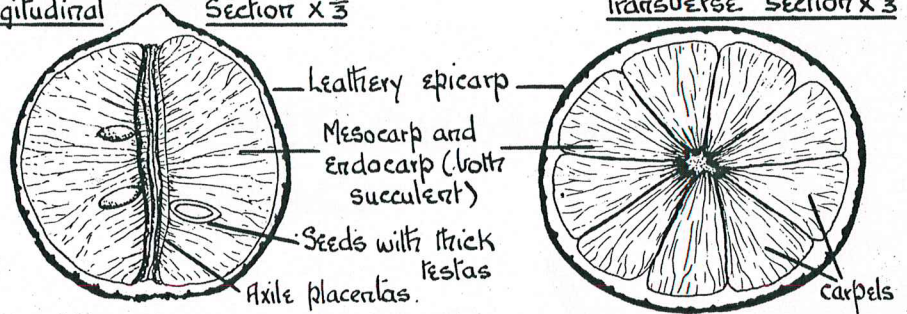 gitudinal Section x 2/3
Transverse Section x 3
Leathery epicarp
Mesocarp and
endocarp (both
succulent)
Seeds with thick
testas
Axile placentas.
carpels